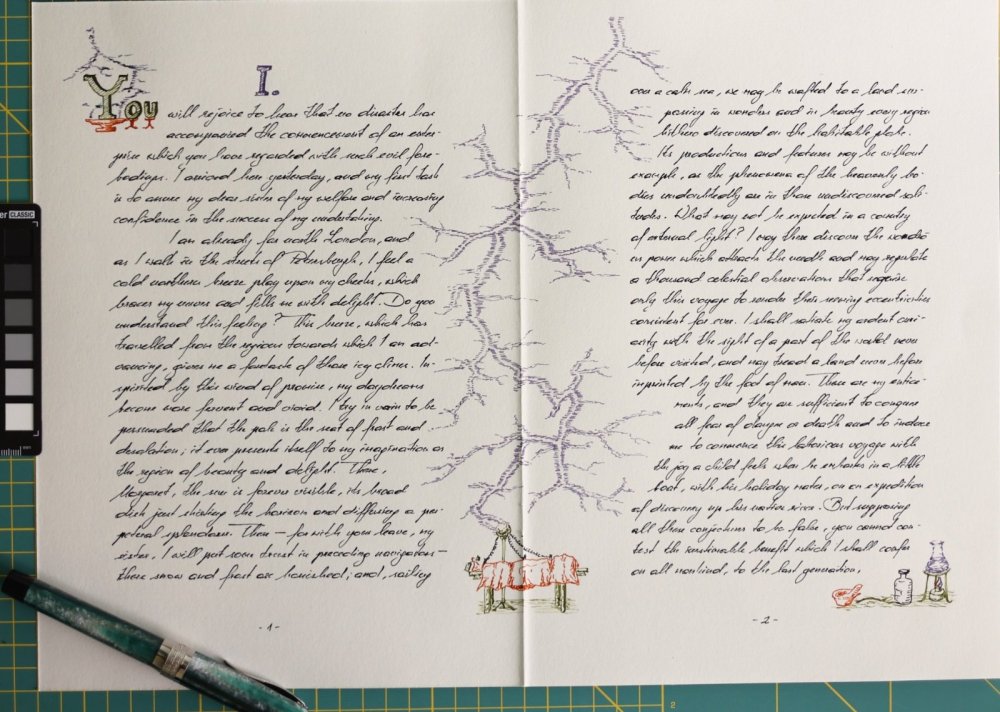 I.
You will rejoice to hear that no disaster has
accompanied the commencement of an enter-
prise which you have regarded with such evil fore-
bodings. I arrived here yesterday, and my first task
is to assure my dear sister of my welfare and increasing
confidence in the success of my undertaking.
I am already far north London, and
as I walk in the streets of Petersburgh, I feel a
cold northern breeze play upon my cheeks, which
braces my nerves and fills me with delight. Do you
understand this feeling? This breeze, which has
travelled from the regions towards which I am ad-
vancing, gives me a foretaste of those icy climes. In-
spirited by this wind of promise, my daydreams
become more fervent and vivid. I try in vain to be
persuaded that the pole is the seat of frost and
desolation; it ever presents itself to my imagination as
the region of beauty and delight. There,
Margaret, the sun is forever visible, its broad
disk just skirting the horizon and diffusing a per-
petual splendour. There – for with your leave, my
sister, I will put some trust in preceding navigators –
there snow and frost are banished; and, sailing
- 1 -
over a calm sea, we may be wafted to a land sur-
passing in wonders and in beauty every region
hitherto discovered on the habitable globe.
Its productions and features may be without
example, as the phenomena of the heavenly bo-
dies undoubtedly are in those undiscovered soli-
tudes. What may not be expected in a country
of eternal light? I may there discover the wondro
us power which attracts the needle and may regulate
a thousand celestial observations that require
only this voyage to render their seeming eccentricities
consistent for ever. I shall satiate my ardent curi-
osity with the sight of a part of the world never
before visited, and may tread a land never before
imprinted by the foot of man. These are my entice-
ments, and they are sufficient to conquer
all fear of danger or death and to induce
me to commence this laborious voyage with
the joy a child feels when he embarks in a little
boat, with his holiday mates, on an expedition
of discovery up his native river. But supposing
all these conjectures to be false, you cannot con-
test the inestimable benefit which I shall confer
on all mankind, to the last generation,
- 2 -
CLASSIC
2